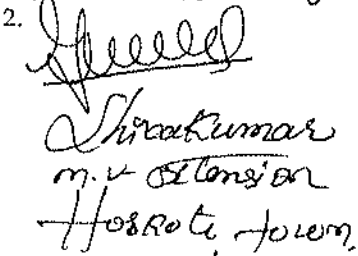 2.
Shivakumar
M.V Extension
Hoskote Town.